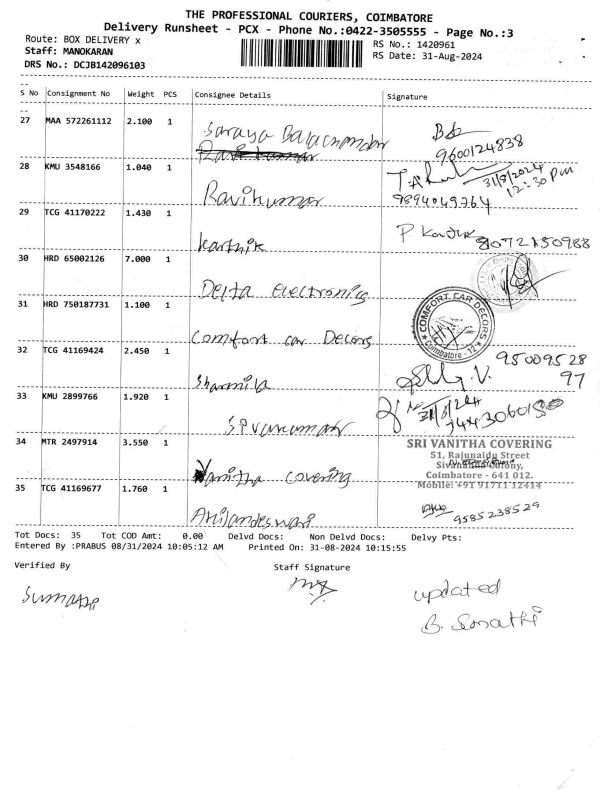 THE PROFESSIONAL COURIERS, COIMBATORE
Delivery Runsheet - PCX - Phone No.:0422-3505555 - Page No.:3
Route: BOX DELIVERY x
RS No.: 1420961
Staff: MANOKARAN
RS Date: 31-Aug-2024
DRS No.: DCJB142096103
S No Consignment No Weight PCS Consignee Details Signature
27 MAA 572261112 2.100 1
Saraya Balachandar
9600124838
28 KMU 3548166 1.040 1
31/8/2024
12:30 pm
Ravikumar 9894049764
29 TCG 41170222 1.430 1
Karthik 8072150988
30 HRD 65002126 7.000 1
Delta electronics
31 HRD 750187731 1.100 1
COMFORT CAR DECORS
Coimbatore - 12
Comfort car Decors
32 TCG 41169424 2.450 1
95009528
97
Sharmila
33 KMU 2899766 1.920 1
31/8/24
34 MTR 2497914 3.550 1
SRI VANITHA COVERING
51, Rajunaidu Street
Sivananda Colony,
Coimbatore - 641 012.
Mobile: +91 91711 12414
Vanitha covering
35 TCG 41169677 1.760 1
9585238529
Tot Docs: 35 Tot COD Amt: 0.00 Delvd Docs: Non Delvd Docs: Delvy Pts:
Entered By :PRABUS 08/31/2024 10:05:12 AM Printed On: 31-08-2024 10:15:55
Verified By Staff Signature
Sumathi
updated